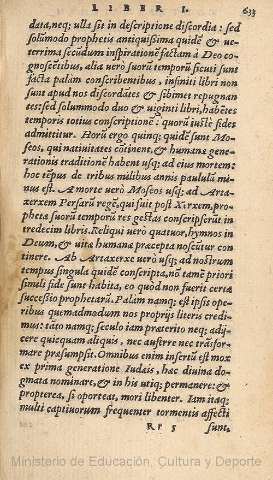 LIBER I. 633
data, neq; ulla sit in descriptione discordia: sed
solũmodo prophetis antiquissima quidẽ & ue-
terrima secũdum inspirationẽ factam à Deo co-
gnoscẽtibus, alia uerò suorũ temporũ sicuti sunt
facta palàm conscribentibus, infiniti libri non
sunt apud nos discordãtes & sibimet repugnan
tes: sed solummodo duo & uiginti libri, habẽtes
temporis totius conscriptionẽ: quorũ iustè fides
admittitur. Horũ ergo quinq; quidẽ sunt Mo-
seos, qui natiuitates cõtinent, & humanæ gene-
rationis traditionẽ habent usq; ad eius mortem:
hoc tẽpus de tribus milibus annis paululũ mi-
nus est. A morte uerò Moseos usq; ad Arta-
xerxem Persarũ regẽ, qui fuit post Xerxem, pro-
phetæ suorũ temporũ res gestas conscripserũt in
tredecim libris. Reliqui uerò quatuor, hymnos in
Deum, & uitæ humanæ præcepta noscũtur con
tinere. Ab Artaxerxe uerò usq; ad nostrum
tempus singula quidẽ conscripta, nõ tamẽ priori
simili fide sunt habita, eo quod non fuerit certa
successio prophetarũ. Palàm namq; est ipsis ope-
ribus quemadmodum nos proprijs literis credi-
mus: tãto namq; seculo iam præterito neq; adij-
cere quicquam aliquis, nec auferre nec trãsfor-
mare præsumpsit. Omnibus enim insertũ est mox
ex prima generatione Iudæis, hæc diuina do-
gmata nominare, & in his utiq; permanere: &
propterea, si oporteat, mori libenter. Iam itaq;
multi captiuorum frequenter tormentis affecti
RR 5 sunt,
Ministerio de Educación, Cultura y Deporte